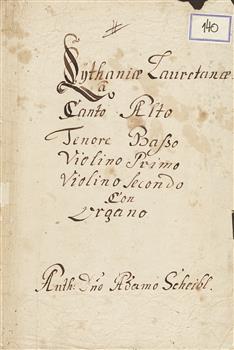 140
Lÿthaniæ Lauretanæ
à
Canto Alto
Tenore Baßo
Violino Primo
Violino Secondo
Con
Organo
Auth: Dño Adamo Scheibl.